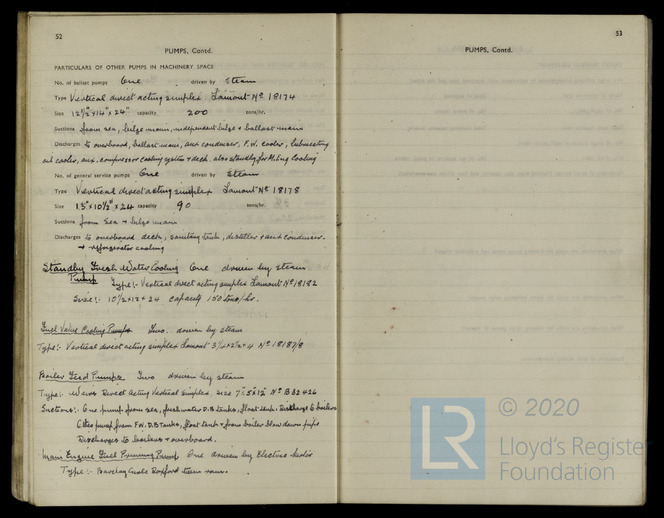 52
PUMPS, Contd.
PARTICULARS OF OTHER PUMPS IN MACHINERY SPACE
No. of ballast pumps One driven by Steam
Type Vertical direct acting simplex Lamont No 18174
Size 12½" x 14" x 24" capacity 200 tons/hr.
Suctions from sea, bilge main, independent bilge + ballast main
Discharges to overboard, ballast main, aux condenser, F.W. cooler, lubricating
oil cooler, aux. compressor cooling system + deck also standby for M. Eng Cooling
No. of general service pumps One driven by Steam
Type Vertical direct acting simplex Lamont No 18178
Size 13" x 10½" x 24 capacity 90 tons/hr.
Suctions from Sea + bilge main
Discharges to overboard deck, sanitary tank, distiller + aux condenser
+ refrigerator cooling
Standby Fresh Water Cooling One driven by steam
Pump Type:- Vertical direct acting simplex Lamont No 18182
Size:- 10½ x 12 x 24 capacity 150 tons/hr.
Fuel Valve Cooling Pumps Two driven by steam
Type:- Vertical direct acting simplex Lamont No 18187/8
Boiler Feed Pumps Two driven by steam
Type:- Weirs Direct Acting Vertical Simplex. size 7" x 5" x 12" No B32426
Suctions:- One pump from sea, fresh water D.B tanks, float tank. Discharge to boilers
Other pump from F.W. D.B Tanks, float tank + from boiler blow down pipes
Discharges to boilers + overboard.
Main Engine Fuel Priming Pump One driven by Electric Motor
Type:- Barclay
53
PUMPS, Contd.
LR
© 2020
Lloyd's Register
Foundation